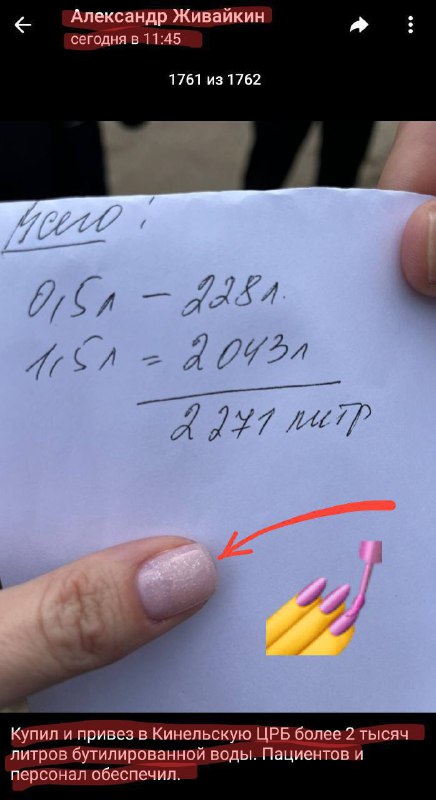 Александр Живайкин
сегодня в 11:45
1761 из 1762
Всего:
0,5л – 228л.
1,5л = 2043л
2271 литр
Купил и привез в Кинельскую ЦРБ более 2 тысяч
литров бутилированной воды. Пациентов и
персонал обеспечил.